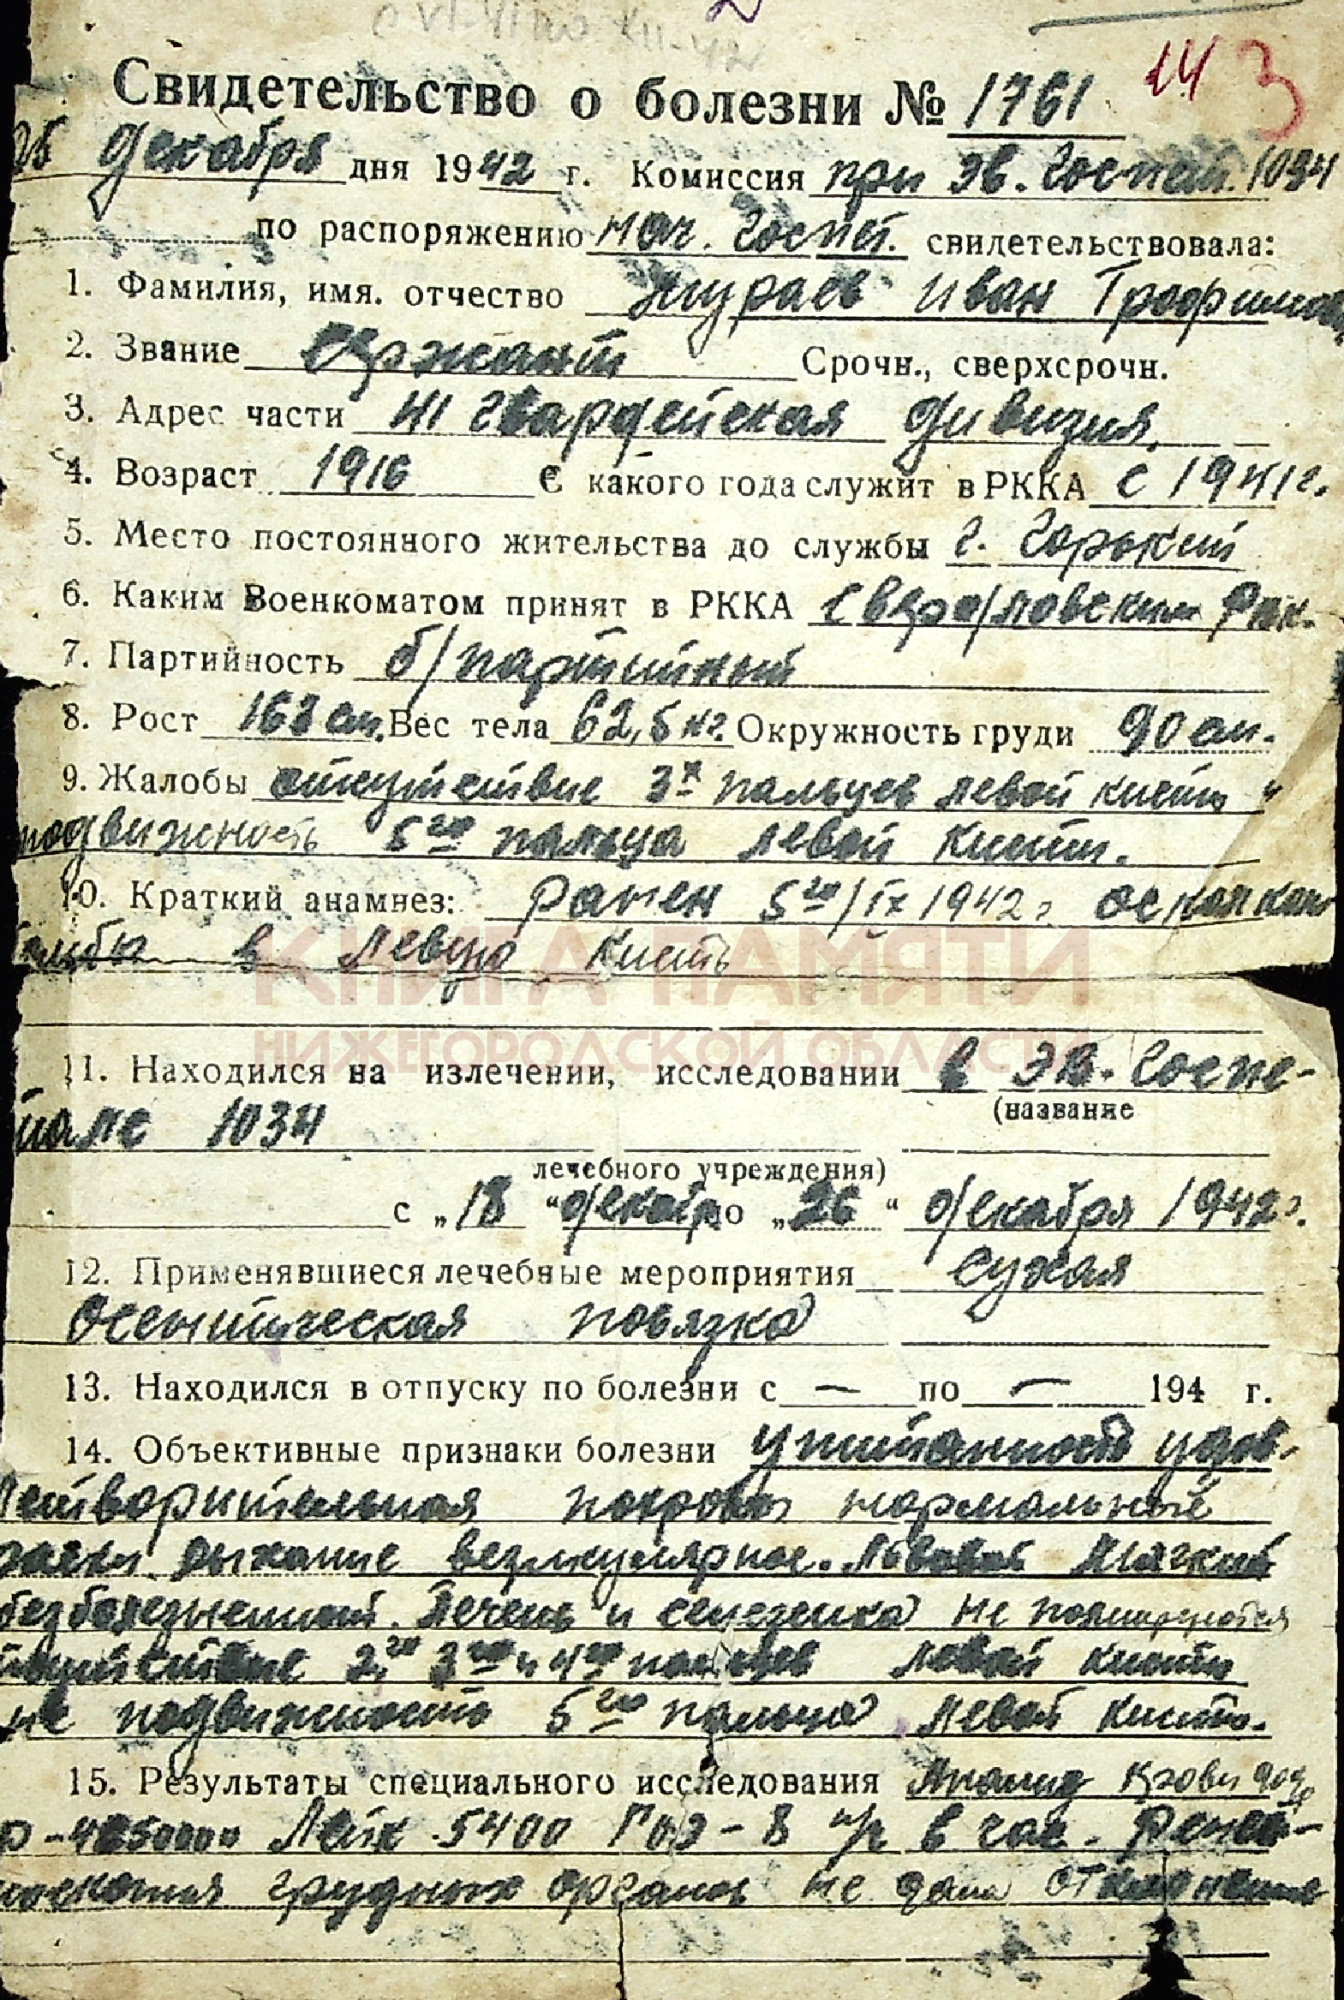 с VI-41 по XII-42
Свидетельство о болезни № 1761 14 3
26 декабря дня 1942 г. Комиссия при эв. Госпит. 1034
по распоряжению нач. Госпит. свидетельствовала:
1. Фамилия, имя. отчество Жураев Иван Трофимов
2. Звание сержант Срочн., сверхсрочн.
3. Адрес части 41 гвардейская дивизия
4. Возраст 1916 С какого года служит в РККА с 1941 г.
5. Место постоянного жительства до службы г. Горький
6. Каким Военкоматом принят в РККА Свердловским Рвк.
7. Партийность б/партийный
8. Рост 163 см. Вес тела 62,5 кг. Окружность груди 90 см.
9. Жалобы отсутствие 3х пальцев левой кисти и
подвижность 5го пальца левой кисти.
10. Краткий анамнез: Ранен 5го/IX 1942 г осколком
бомбы в левую кисть
КНИГА ПАМЯТИ
НИЖЕГОРОДСКОЙ ОБЛАСТИ
11. Находился на излечении, исследовании в эв. Госпи-
тале 1034 (название
лечебного учреждения)
с „18 “ декабр по „26 “ декабря 1942 г.
12. Применявшиеся лечебные мероприятия сухая
асептическая повязка
13. Находился в отпуску по болезни с — по — 194 г.
14. Объективные признаки болезни упитанность удов-
летворительная покровы нормальной
окраски дыхание везикулярное. Живот мягкий
безболезненный. Печень и селезенка не пальпируются
отсутствие 2го 3го и 4го пальцев левой кисти
не подвижность 5го пальца левой кисти.
15. Результаты специального исследования Анализ крови
Лейк 5400 РоЭ - 8 м/м в час. Рентге-
носкопия грудных органов не дала отклонения